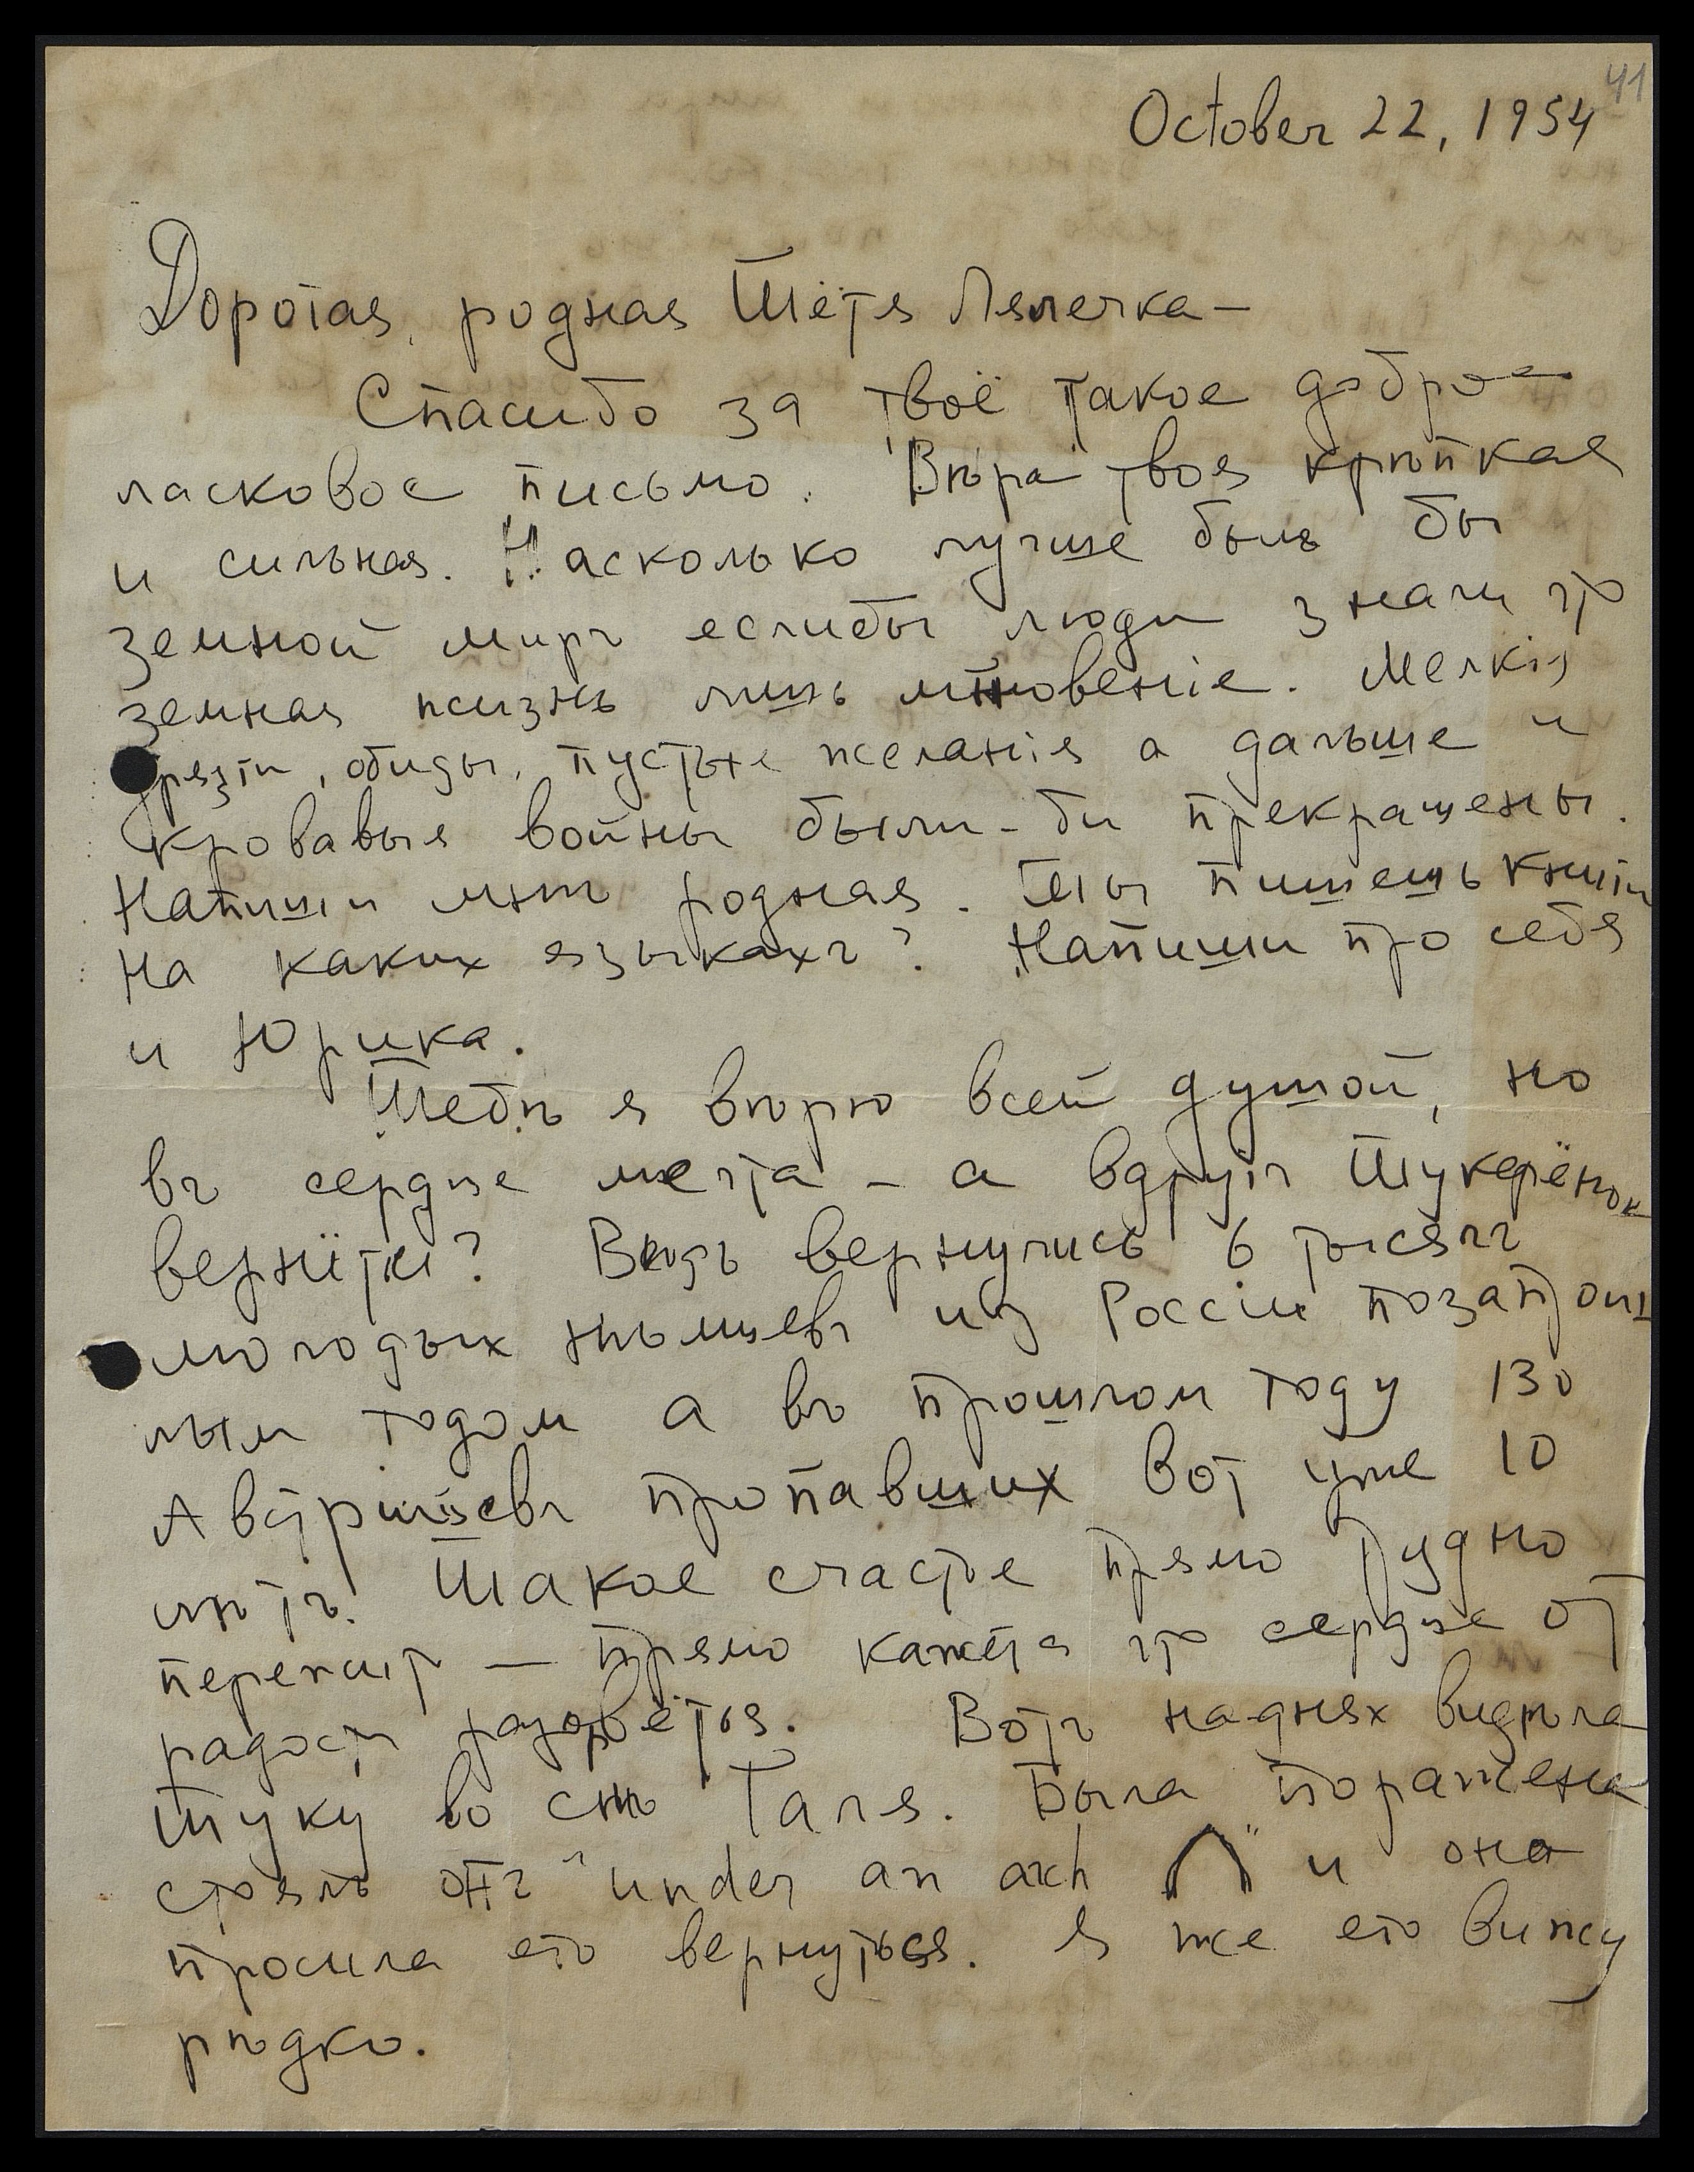 41
October 22, 1954
Дорогая, родная Тётя Лялечка –
Спасибо за твоё такое доброе
ласковое письмо. Вѣра твоя крѣпкая
и сильная. Насколько лучше былъ бы
земной миръ еслибы люди знали что
земная жизнь лишь мгновеніе. Мелкія
дрязги, обиды, пустые желанія а дальше и
кровавыя войны были-бы прекращены.
Напиши мнѣ родная. Ты пишешь книги
на каких языкахъ? Напиши про себя
и Юрика.
Тебѣ я вѣрю всей душой, но
въ сердце мечта – а вдругъ Тукфёнок
вернётся? Вѣдь вернулись 6 тысячъ
молодых нѣмцевъ из Россіи позапрош
лым годом а въ прошлом году 130
Австрійцевъ пропавших вот уже 10
лѣтъ. Такое счастье прямо трудно
пережить – прямо кажется что сердце от
радости разорвётся. Вотъ на-днях видѣла
Туку во снѣ Галя. Была поражена
стоялъ онъ "under an arch ⋂" и она
просила его вернуться. Я же его вижу
рѣдко.